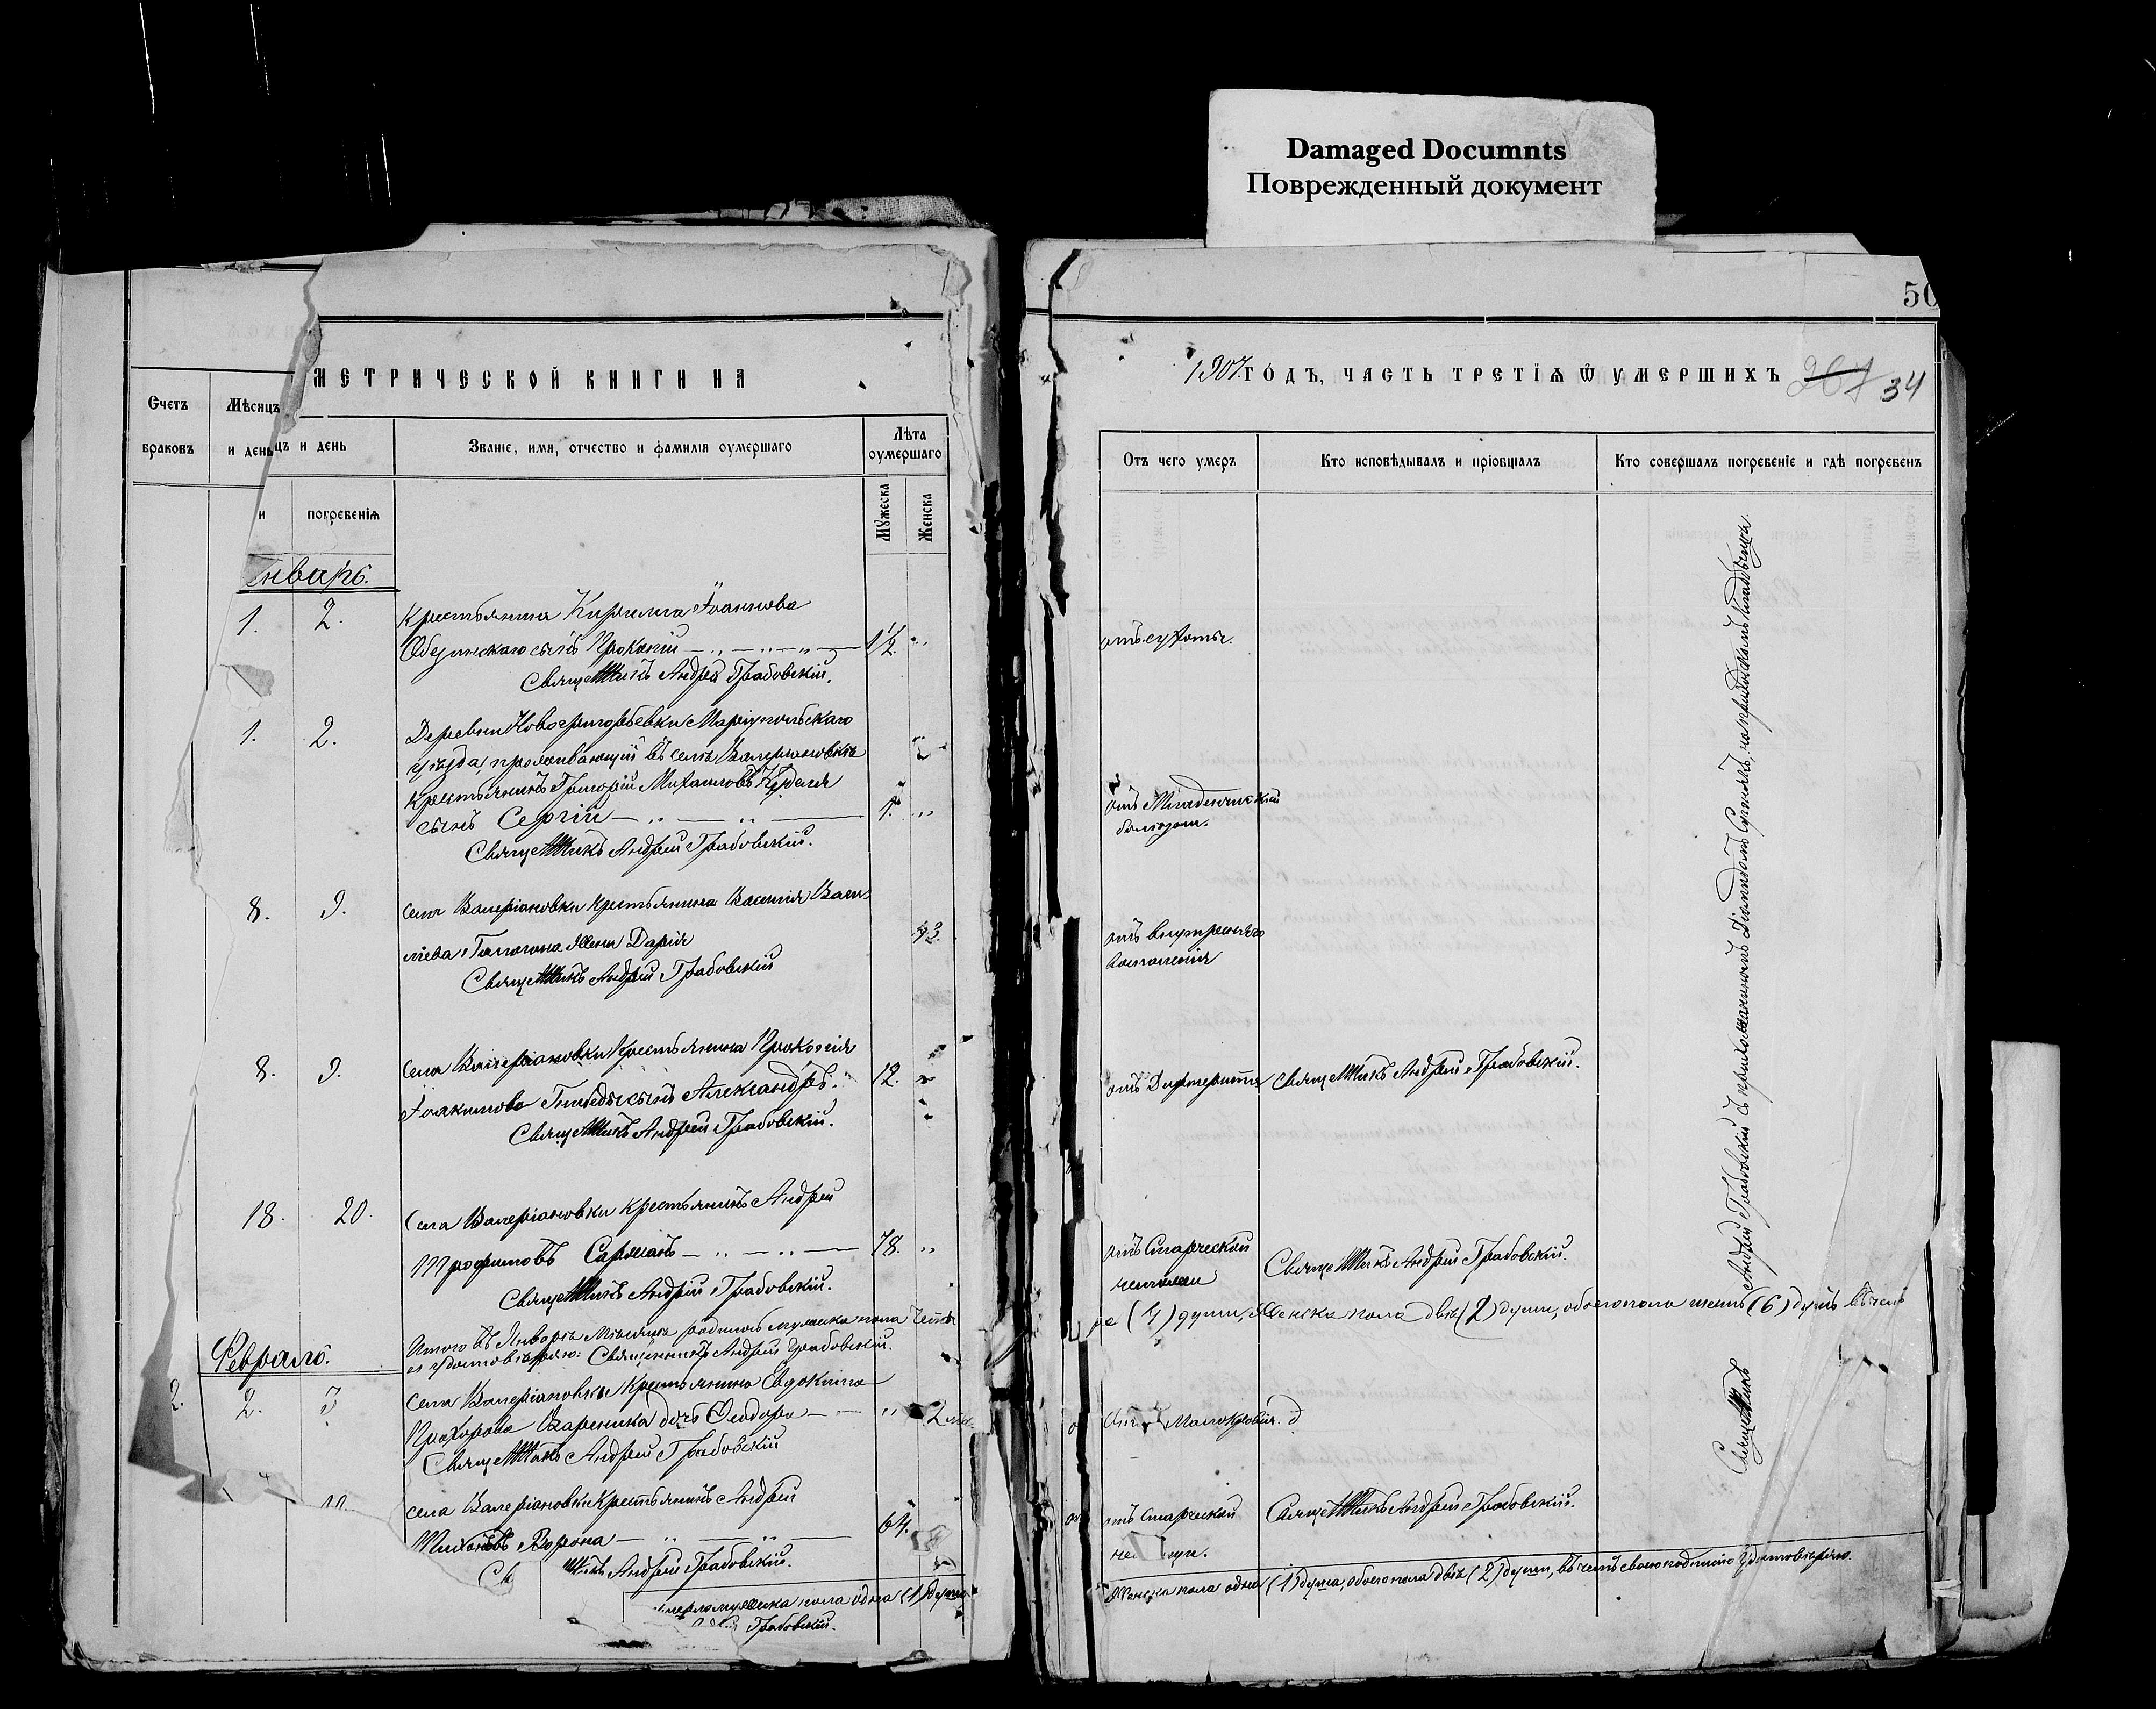 Damaged Documnts
Поврежденный документ
МЕТРИЧЕСКОЙ КНИГИ НА
Счетъ браковъ
Мѣсяцъ и день
цъ и день
Званіе, имя, отчество и фамилія оумершаго
Лѣта оумершаго
и
погребенія
Мужеска
Женска
Январь.
1. 2. Крестьянина Кирилла Іоаннова
сынъ Прокопій 1½ "
Священникъ Андрей Грабовскій.
1. 2. Деревни Новогригорьевки Маріупольскаго
уѣзда, проживающій въ селѣ Валеріановкѣ
крестьянинъ Григорій Михаиловъ
сынъ Сергій 1. "
Священникъ Андрей Грабовскій.
8. 9. села Валеріановки крестьянина Василія Васи
ліева жена Дарія 73.
Священникъ Андрей Грабовскій
8. 9. села Валеріановки Крестьянина Прокопія
Іоакимова сынъ Александръ. 12. "
Священникъ Андрей Грабовскій.
18. 20. Села Валеріановки крестьянинъ Андрей
Трофимовъ Саржанъ 78. "
Священникъ Андрей Грабовскій.
Итого въ Январѣ Мѣсяцѣ родилось мужска пола четы
удостовѣряю: Священникъ Андрей Грабовскій.
Февраль.
2. 2. 3 села Валеріановки Крестьянина Евдокима
Прохорова Вареника дочь Ѳеодора " 2
Священникъ Андрей Грабовскій
села Валеріановки Крестьянинъ Андрей
Тихоновъ Ворона 64.
Св никъ Андрей Грабовскій.
мужска пола одна (1) душа
Грабовскій.
50
1907 ГОДЪ, ЧАСТЬ ТРЕТІЯ Ѿ УМЕРШИХЪ 267 34
Отъ чего умеръ
Кто исповѣдывалъ и пріобщалъ
Кто совершалъ погребеніе и гдѣ погребенъ
отъ сухоты.
отъ Младенческой
болѣзни.
отъ внутренняго
воспаленія
отъ Дифтерита Священникъ Андрей Грабовскій.
отъ Старческой
немощи
Священникъ Андрей Грабовскій.
ре (4) души, Женска пола двѣ (2) души, обоего пола шесть (6) душъ въ чемъ
Малокровія.
отъ Старческой
Священникъ Андрей Грабовскій.
Женска пола одна (1) душа, обоего пола двѣ (2) души, въ чемъ своею подписью Удостовѣряю.
Священникъ Андрей Грабовскій съ Діакономъ на приходскомъ кладбищѣ.